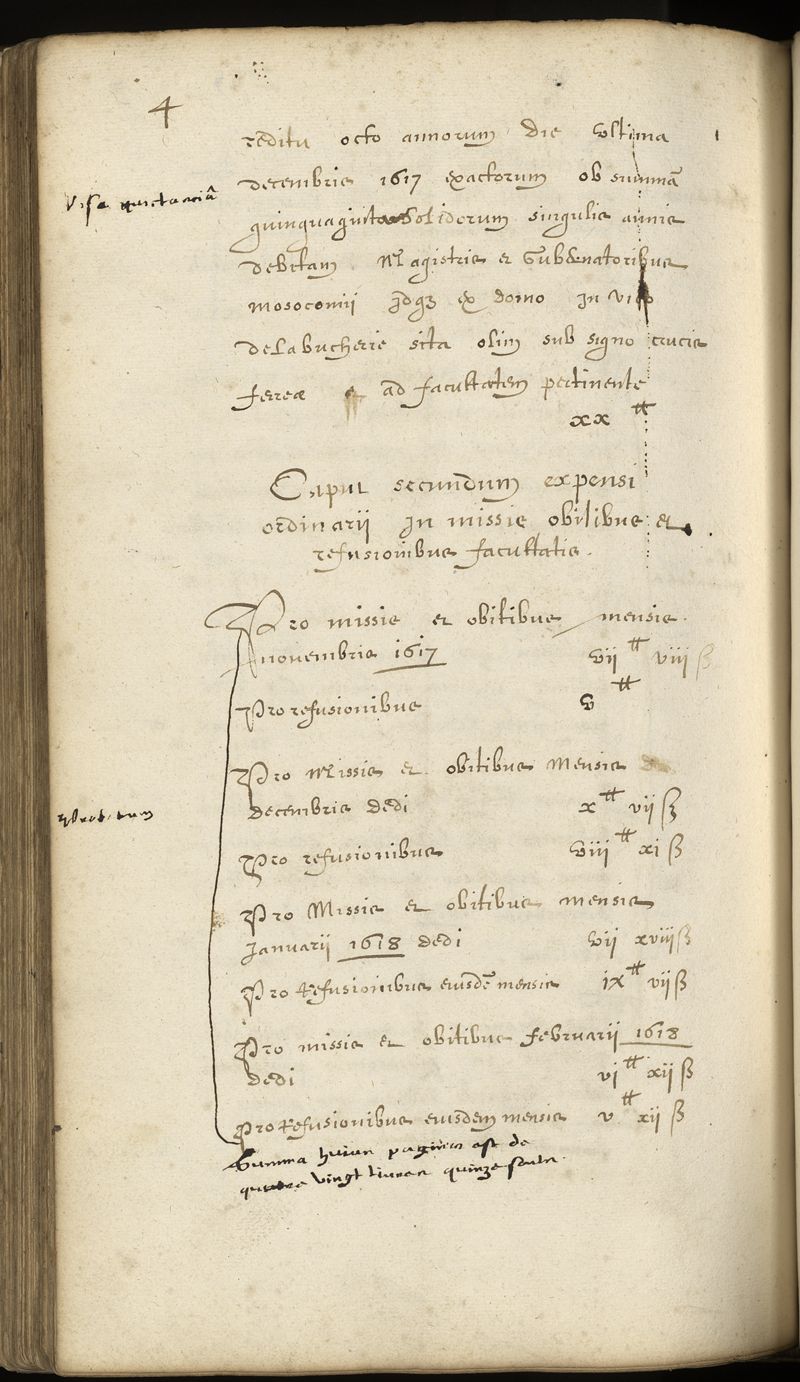 4
reditu octo annorum die Vltima
Visa quictanciã
decembris 1617 exactorum ob summã
quinquaginta Solidorum singulis annis
debitam Magistris et Gubernatoribus
Nosocomii Idq3 ex domo in vico
de La bucherie sita olim sub signo crucis
ferreæ et ad facultatem pertinente
xx ₶
Caput secundum expensi
ordinarii In missis obitibus et
refusionibus facultatis.
Pro missis et obitibus mensis
novembris 1617 vii ₶ viii ß
Pro refusionibus v ₶
Pro Missis et obitibus Mensis
decembris dedi x ₶ vii ß
Pro refusionibus viii ₶ xi ß
Pro Missis et obitibus mensis
Januarii 1618 dedi vii xviii ß
Pro Refusionibus eiusdẽ mensis ix ₶ vii ß
Pro missis et obitibus februarii 1618
dedi vi ₶ xii ß
Pro Refusionibus eiusdem mensis v ₶ xii ß
Summa huius paginæ est de
quatre vingt livres quinze soulz